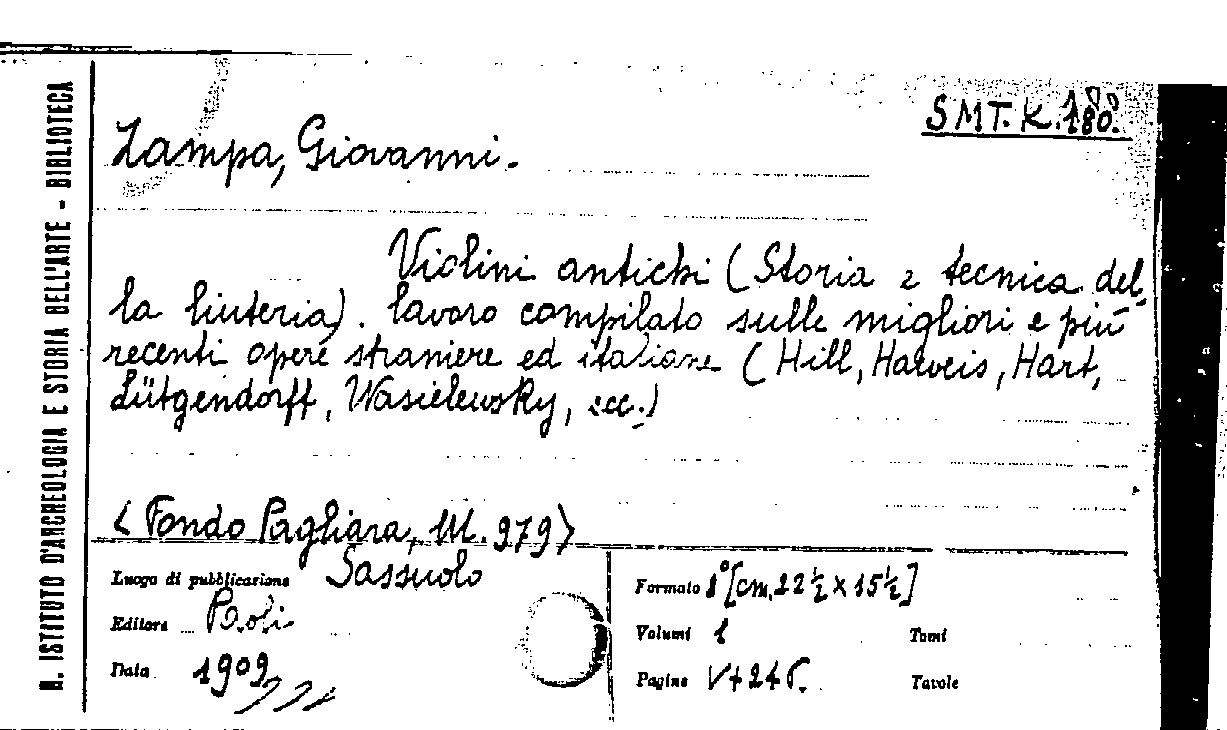 SMT. K. 180.
Zampa, Giovanni.
Violini antichi (Storia e tecnica del-
la liuteria). lavoro compilato sulle migliori e più
recenti opere straniere ed italiane (Hill, Haweis, Hart,
Lütgendorff, Wasielewsky, ecc.)
<Fondo Pagliara, M. 979>
Luogo di pubblicazione Sassuolo
Editore Paoli
Data 1909
Formato 8° [cm. 22 ½ x 15 ½]
Volumi 1
Tomi
Pagine V+246.
Tavole
R. ISTITUTO D'ARCHEOLOGIA E STORIA DELL'ARTE - BIBLIOTECA